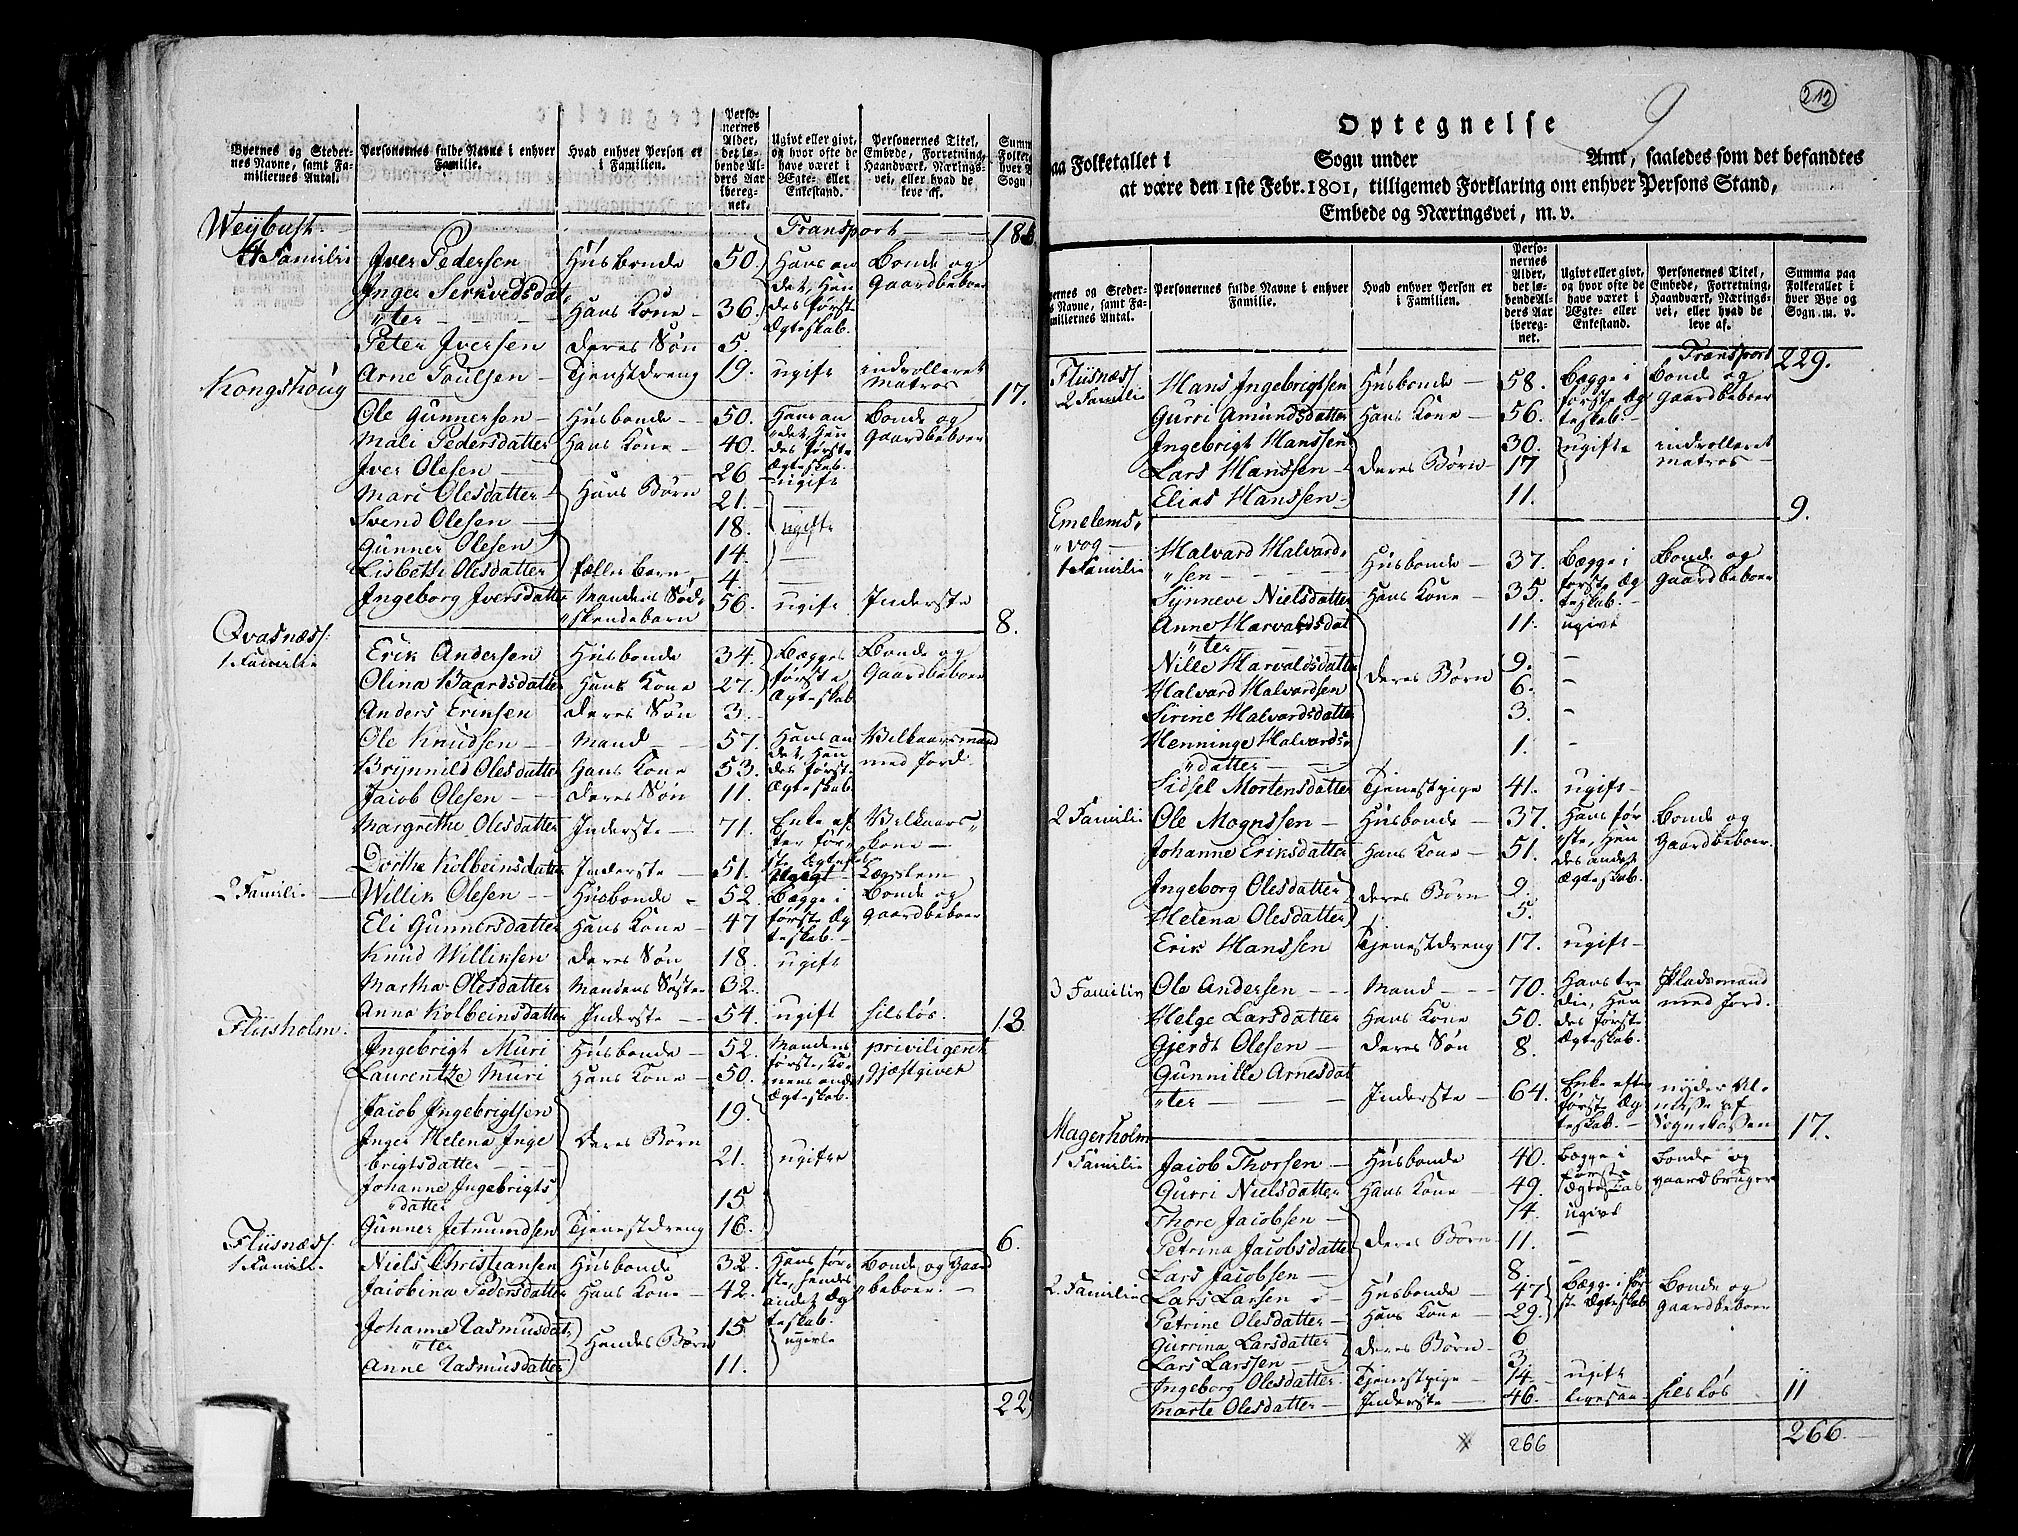 Byernes og Stedernes Navne, samt Familiernes Antal.
Personernes fulde Navne i enhver Familie.
Hvad enhver Person er i Familien.
Personernes Alder, det løbende Alders Aar iberegnet.
Ugivt eller givt, og hvor ofte de have været i Ægte- eller Enkestand.
Personernes Titel, Embede, Forretning, Haandværk, Næringsvei, eller hvad de leve af.
Weybust — Transport — 186
4 Familie Jver Pedersen Husbonde 50. Hans an Bonde og
Inger Serkvedsdat det, Hen Gaardbeboer
"ter — — Hans Kone — 36. des første Ægteskab.
Peter Jversen Deres Søn 5.
Arne Poulsen — Tjenestdreng 19. ugift indrolleret Matros
Kongshoug 17.
Ole Gunnersen — Husbonde — 50. Hans an Bonde og
Mali Pedersdatter Hans Kone — 40. det, Hen Gaardbeboer
Jver Olesen — 26 des første Ægteskab.
Mari Olesdatter Hans Børn 21. ugift
Svend Olesen — 18. ugifte
Gunner Olesen 14. —
Lisbeth Olesdatter fælles børn 4. —
Ingeborg Jversdatter Mandens Sød- 56. ugift Inderste
"skendebarn 8.
Qvasnæss:
1 Familie Erik Andersen Husbonde 34. Begges Bonde og
Olina Baardsdatter Hans Kone 27. første Gaardbeboer
Anders Eriksen Deres Søn 3. Ægteskab
Ole Knudsen — Mand — 57. Hans an Vilkaarsmand
Brynnild Olesdatter Hans Kone 53. det, Hen med Jord.
Jacob Olesen — Deres Søn 11. des første Ægteskab.
Margrethe Olesdatter Inderste — 71. Enke ef- Vilkaars
ter før- kone —
Dorthe Kolbeinsdatter Inderste — 51. ste Ægtesk. Ugivt Lægslem
2 Familie — Willik Olesen — Husbonde — 52. Begge i Bonde og
Eli Gunnersdatter Hans Kone — 47 første Æg Gaardbeboer
Knud Williksen Deres Søn 18. teskab. — ugift
Martha Olesdatter Mandens Søster 32.
Anna Kolbeinsdatter Inderste — 54. ugift hilsløs. 13
Fliisholm.
Ingebrigt Muri Husbonde — 52. Mandens priviligeret
Laurentze Muri Hans Kone — 50. første, Ko Gjæstgiver
nens andet Ægteskab.
Jacob Ingebrigtsen 19.
Inger Helena Inge Deres Børn
brigtsdatter — — 21. ugifte
Johanne Ingebrigts
"datter 15
Gunner Jetmundsen Tjenestdreng 16. 6.
Fliisnæss:
1 Familie Niels Christiansen Husbonde 32. Hans før- Bonde og Gaard
Jacobina Pedersdatter Hans Kone — 42. ste, hendes "beboer. —
andet Æg teskab.
Johanne Rasmusdat 15 ugivte
"ter Hendes Børn
Anne Rasmusdatter 11.
229
212
9
Optegnelse
paa Folketallet i Sogn under Amt, saaledes som det befandtes
at være den 1ste Febr. 1801, tilligemed Forklaring om enhver Persons Stand,
Embede og Næringsvei, m. v.
Personernes fulde Navne i enhver Familie.
Hvad enhver Person er i Familien.
Personernes Alder, det løbende Alders Aar iberegnet.
Ugivt eller givt, og hvor ofte de have været i Ægte- eller Enkestand.
Personernes Titel, Embede, Forretning, Haandværk, Næringsvei, eller hvad de leve af.
Summa paa Folketallet i hver Bye og Sogn. m. v.
Transport 229.
Fliisnæss
2 Familie Hans Ingebrigtsen Husbonde — 58. Begge i Bonde og
Gurri Amundsdatter Hans Kone — 56. første Æg Gaardbeboer
teskab. —
Ingebrigt Hanssen 30. ugifte indrolleret
Lars Hanssen — Deres Børn — 17 Matros —
Elias Hanssen — 11. 9.
Emelems-
"vog —
1 Familie Halvard Halvard-
"sen — — Husbonde — 37. Begge i Bonde og
Synneve Nielsdatter Hans Kone — 35. første Æg Gaardbeboer
teskab. —
Anne Harvalsdat 11. ugivt
"ter — —
Nille Harvaldsdatter 9. —
Halvard Halvardsen Deres Børn 6. —
Sirine Halvardsdatter 3. —
Henninge Halvards-
"datter — — 1. —
Sidsel Mortensdatter Tjenestpige 41. ugift —
2 Familie Ole Mognssen — Husbonde — 37. Hans før Bonde og
Johanne Eriksdatter Hans Kone — 51. ste, Hen Gaardbeboer.
des andet Ægteskab.
Ingeborg Olesdatter Deres Børn 9.
Helena Olesdatter 5.
Erik Hanssen Tjenestdreng 17. ugift —
3 Familie Ole Andersen — — Mand — 70. Hans tre Pladsmand
die, Hen med Jord.
Helge Larsdatter Hans Kone 50. des første
Gjerdt Olesen — Deres Søn 8. Ægteskab.
Gunnille Arnesdat
"ter — — — Inderste — 64. Enke efter nyder Al-
første Æg misse af
teskab. — Sognekassen 17.
Magerholm
1 Familie Jacob Thorsen — Husbonde 40. Begge i Bonde og
Gurri Nielsdatter Hans Kone — 49. første Gaardbruger
Thore Jacobsen — 14. ugivt
Petrina Jacobsdatter Deres Børn — 11. —
Lars Jacobsen — 8. —
2 Familie Lars Larsen — Husbonde — 47 Begge i før Bonde og
Petrine Olesdatter — Hans Kone — 29. ste Ægteskab Gaardbeboer
Gurrina Larsdatter Deres Børn — 6
Lars Larssen — 3.
Ingeborg Olesdatter — Tjenestpige — 14. ugift
Marte Olesdatter — Inderste — 46. hilsløs 11
266 266.